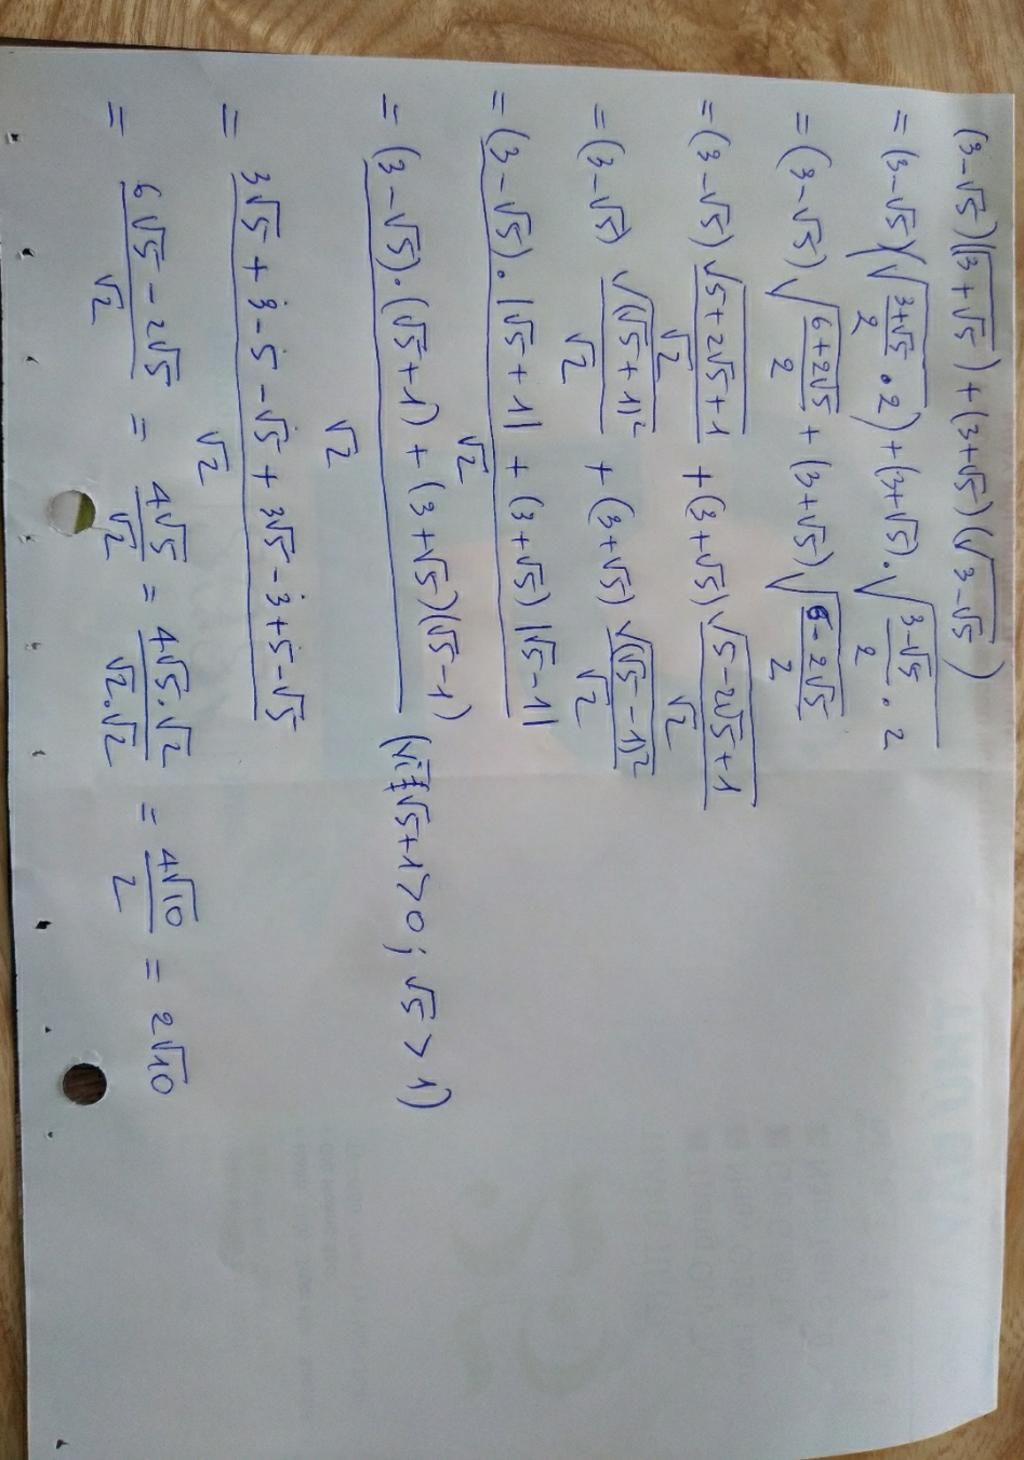 (3-√5)(√(3+√5)) + (3+√5)(√(3-√5))
= (3-√5)(√((3+√5)/2 · 2)) + (3+√5) · √((3-√5)/2 · 2)
= (3-√5) √((6+2√5)/2) + (3+√5) √((6-2√5)/2)
= (3-√5) √(5+2√5+1)/√2 + (3+√5) √(5-2√5+1)/√2
= (3-√5) √((√5+1)²)/√2 + (3+√5) √((√5-1)²)/√2
= ((3-√5) · |√5+1| + (3+√5) |√5-1|)/√2
= ((3-√5) · (√5+1) + (3+√5)(√5-1))/√2 (vì √5+1>0; √5>1)
= (3√5+3-5-√5+3√5-3+5-√5)/√2
= (6√5-2√5)/√2 = 4√5/√2 = (4√5·√2)/(√2·√2) = 4√10/2 = 2√10